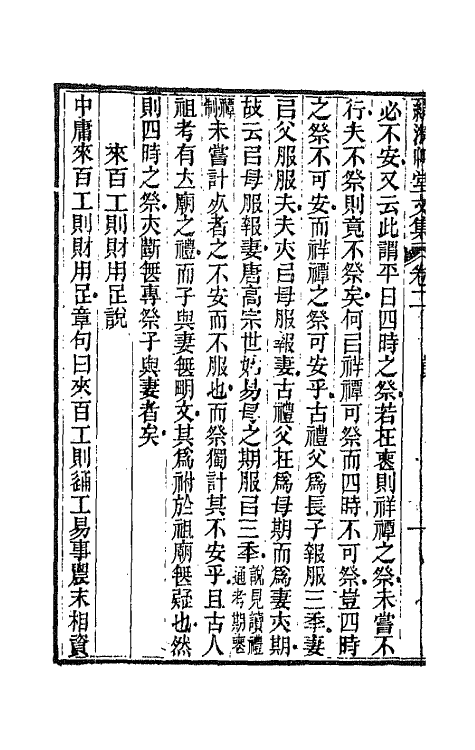 必不安又云此謂平日四時之祭若在喪則祥禫之祭未嘗不
行夫不祭則竟不祭矣何㠯祥禫可祭而四時不可祭豈四時
之祭不可安而祥禫之祭可安乎古禮父爲長子報服三季妻
㠯父服服夫夫亦㠯母服報妻古禮父在爲母期而爲妻亦期
故云㠯母服報妻唐高宗世始易母之期服㠯三季說見讀禮通考期喪
禫制未嘗計死者之不安而不服也而祭獨計其不安乎且古人
祖考有大廟之禮而子與妻無明文其爲祔於祖廟無疑也然
則四時之祭亦斷無專祭子與妻者矣
來百工則財用足說
中庸來百工則財用足章句曰來百工則通工易事農末相資